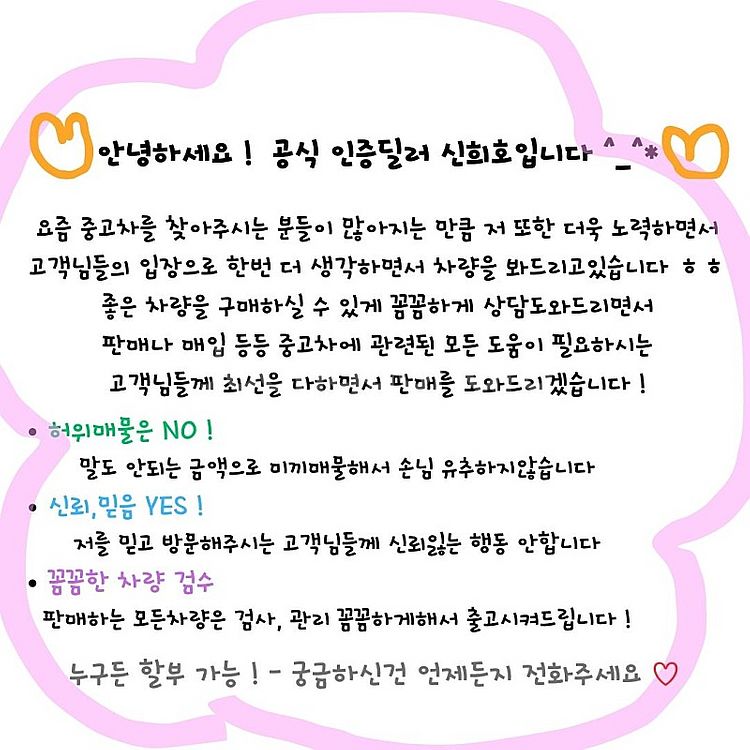 안녕하세요! 공식 인증딜러 신희호입니다 ^_^*
요즘 중고차를 찾아주시는 분들이 많아지는 만큼 저 또한 더욱 노력하면서
고객님들의 입장으로 한번 더 생각하면서 차량을 봐드리고있습니다 ㅎㅎ
좋은 차량을 구매하실 수 있게 꼼꼼하게 상담도와드리면서
판매나 매입 등등 중고차에 관련된 모든 도움이 필요하시는
고객님들께 최선을 다하면서 판매를 도와드리겠습니다!
• 허위매물은 NO!
말도 안되는 금액으로 미끼매물해서 손님 유추하지않습니다
• 신뢰,믿음 YES!
저를 믿고 방문해주시는 고객님들께 신뢰잃는 행동 안합니다
• 꼼꼼한 차량 검수
판매하는 모든차량은 검사, 관리 꼼꼼하게해서 출고시켜드립니다!
누구든 할부 가능! - 궁금하신건 언제든지 전화주세요 ♡